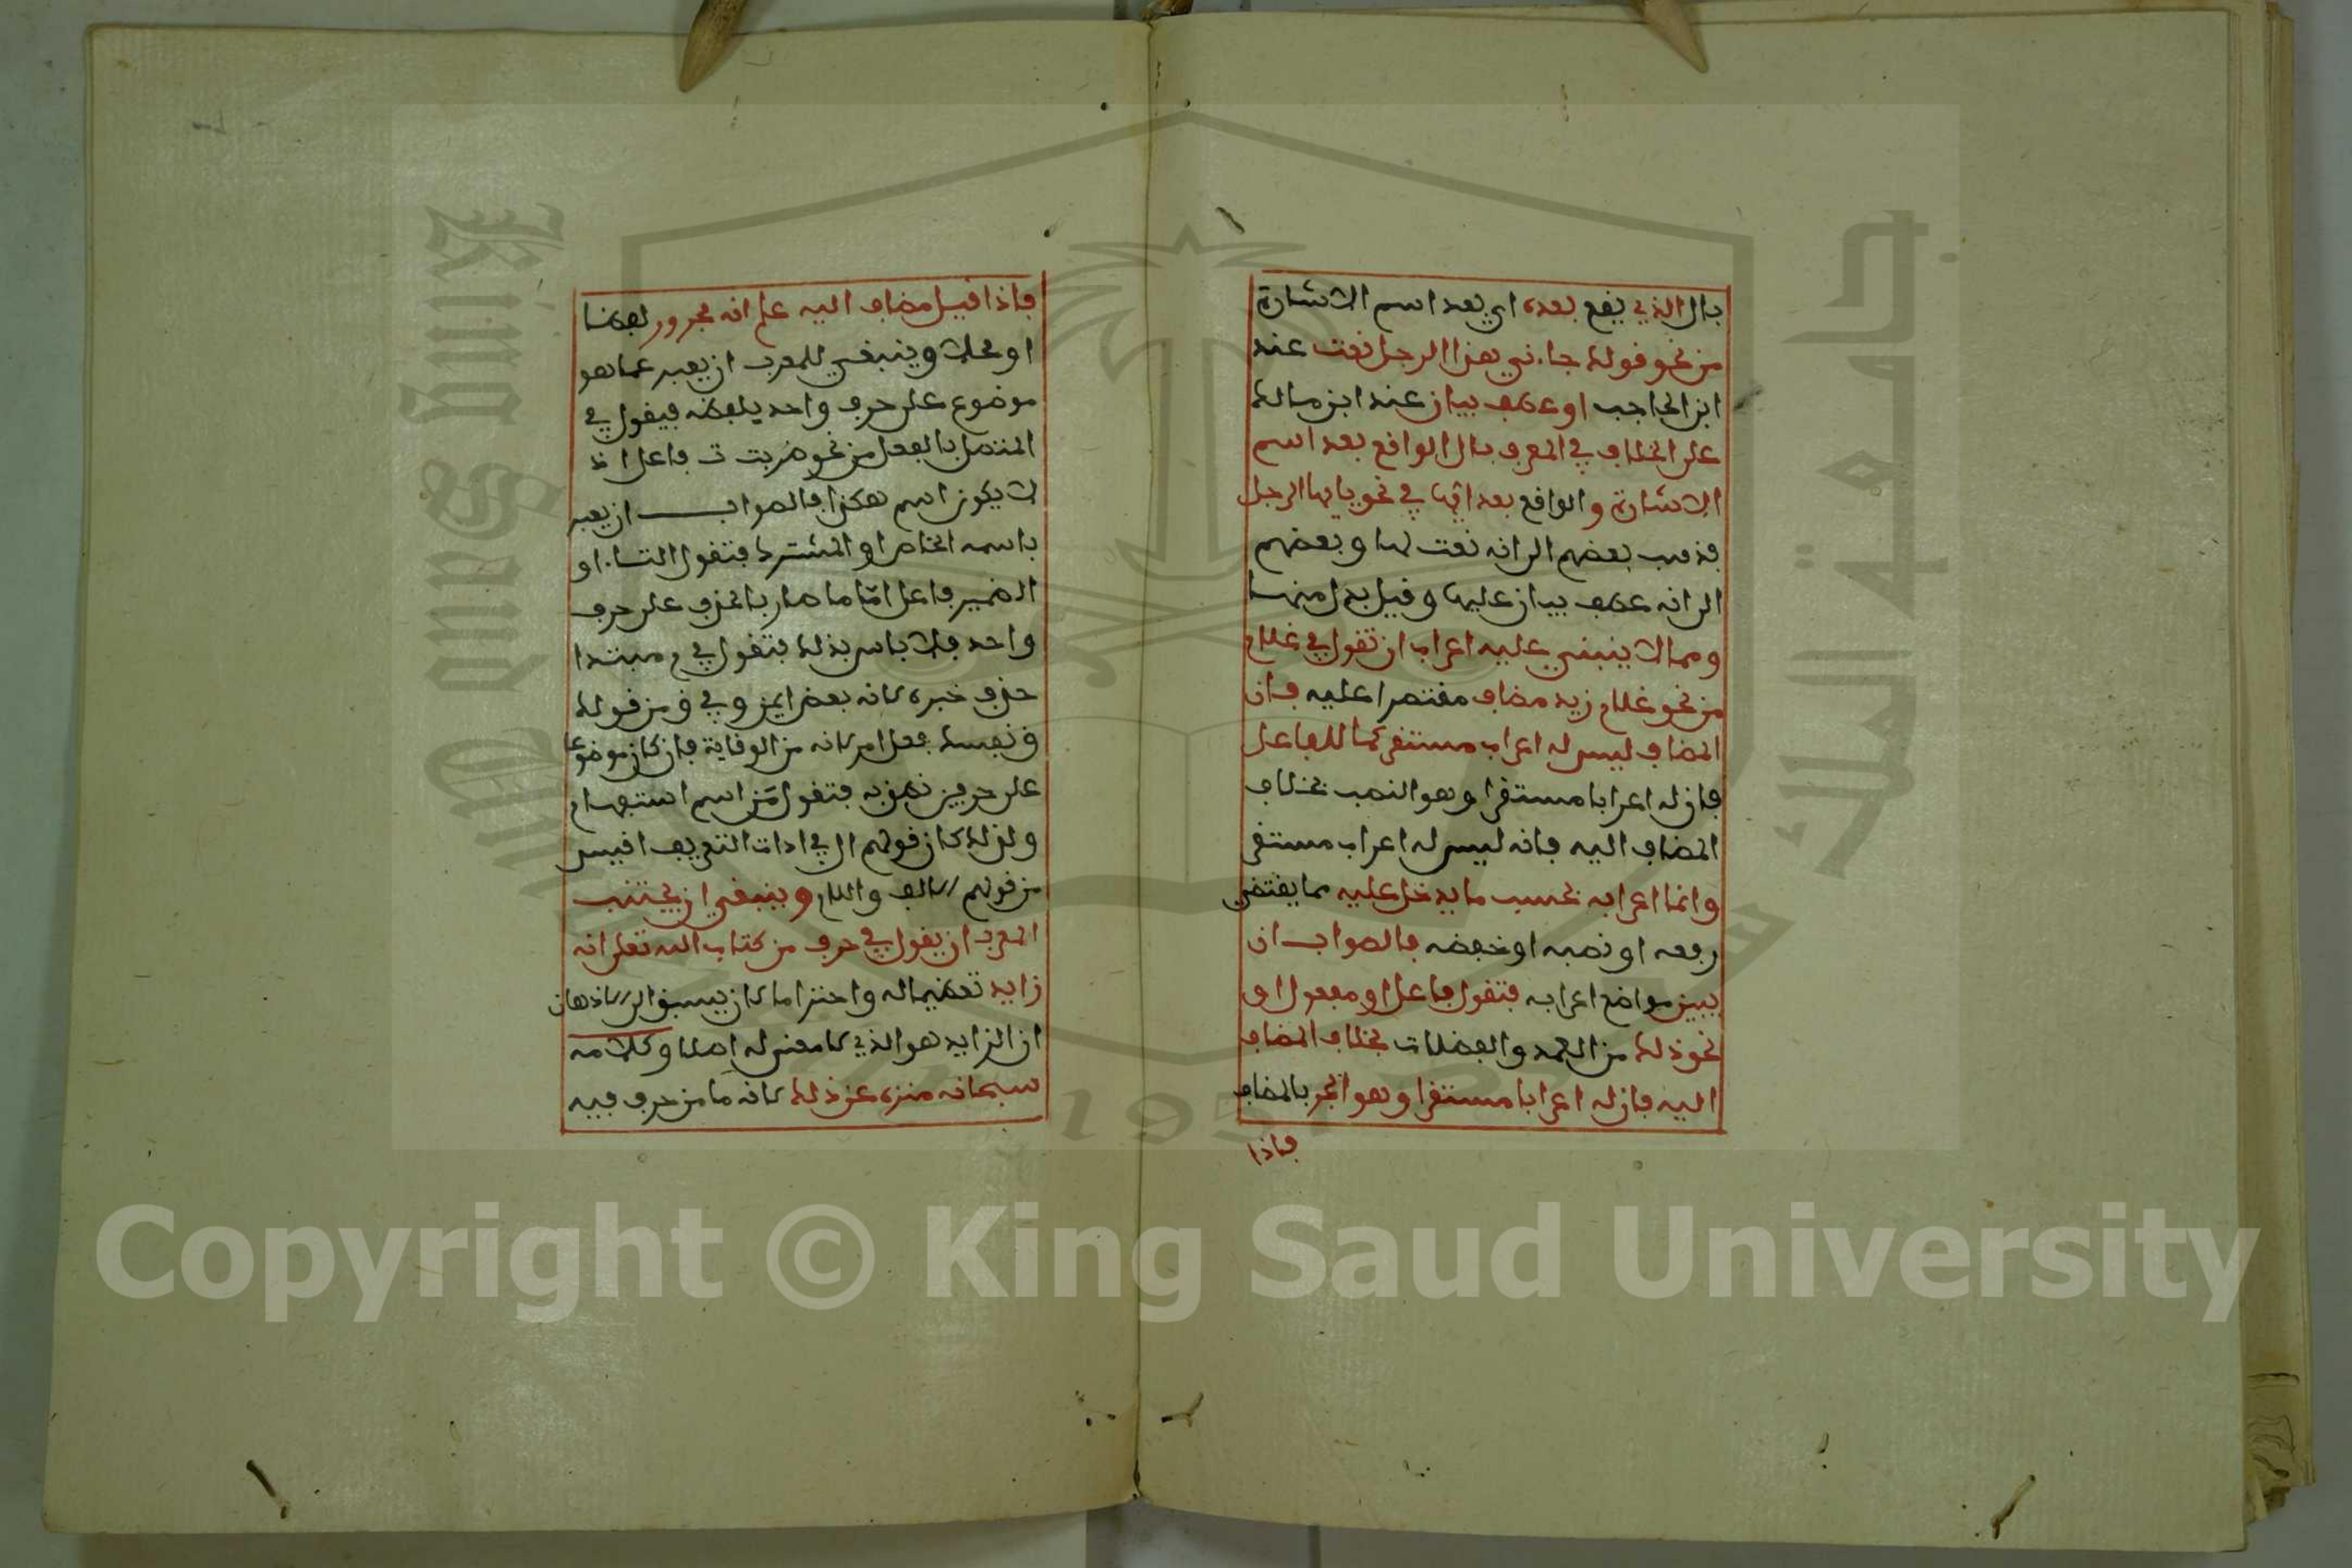 بال الذي يقع بعده اي بعد اسم الاشارة
من نحو قولك جاءني هذا الرجل نعت عند
ابن الحاجب او عطف بيان عند ابن مالك
على الخلاف في المعرف بال الواقع بعد اسم
الاشارة والواقع بعد ايها في نحو يا ايها الرجل
فذهب بعضهم الى انه نعت لها وبعضهم
الى انه عطف بيان عليها وقيل بدل منها
ومما لا ينبني عليه اعراب ان تقول في غلام
من نحو غلام زيد مضاف مقتصرا عليه فان
المضاف ليس له اعراب مستقر كما للفاعل
فان له اعرابا مستقرا وهو النصب بخلاف
المضاف اليه فانه ليس له اعراب مستقر
وانما اعرابه بحسب ما يدخل عليه مما يقتضي
رفعه او نصبه او خفضه فالصواب ان
يبين مواضع اعرابه فتقول فاعل او مفعول او
نحو ذلك من العمد والفضلات بخلاف المضاف
اليه فان له اعرابا مستقرا وهو الجر بالمضاف
فاذا
فاذا قيل مضاف اليه علم انه مجرور لفظا
او محلا وينبغي للمعرب ان يعبر عما هو
موضوع على حرف واحد بلفظه فيقول في
المتصل بالفعل من نحو ضربت ت فاعل اذ
لا يكون اسم هكذا فالصواب ان يعبر
باسمه الخاص او المشترك فتقول التاء او
الضمير فاعل امّا ما صار بالحذف على حرف
واحد فلا باس بذلك فتقول في م مبتدا
حذف خبره لانه بعض ايمن وفي ق من قولك
ق نفسك فعل امر لانه من الوقاية فان كان موضوعا
على حرفين نطق به فتقول مَن اسم استفهام
ولذلك كان قولهم ال في ادات التعريف اقيس
من قولهم الالف واللام وينبغي ان يجتنب
المعرب ان يقول في حرف من كتاب الله تعلى انه
زايد تعظيما له واحتراما لان يسبق الى الاذهان
ان الزايد هو الذي لا معنى له اصلا وكلامه
سبحانه منزه عن ذلك لانه ما من حرف فيه
جامعة الملك سعود
King Saud University
1957
Copyright © King Saud University